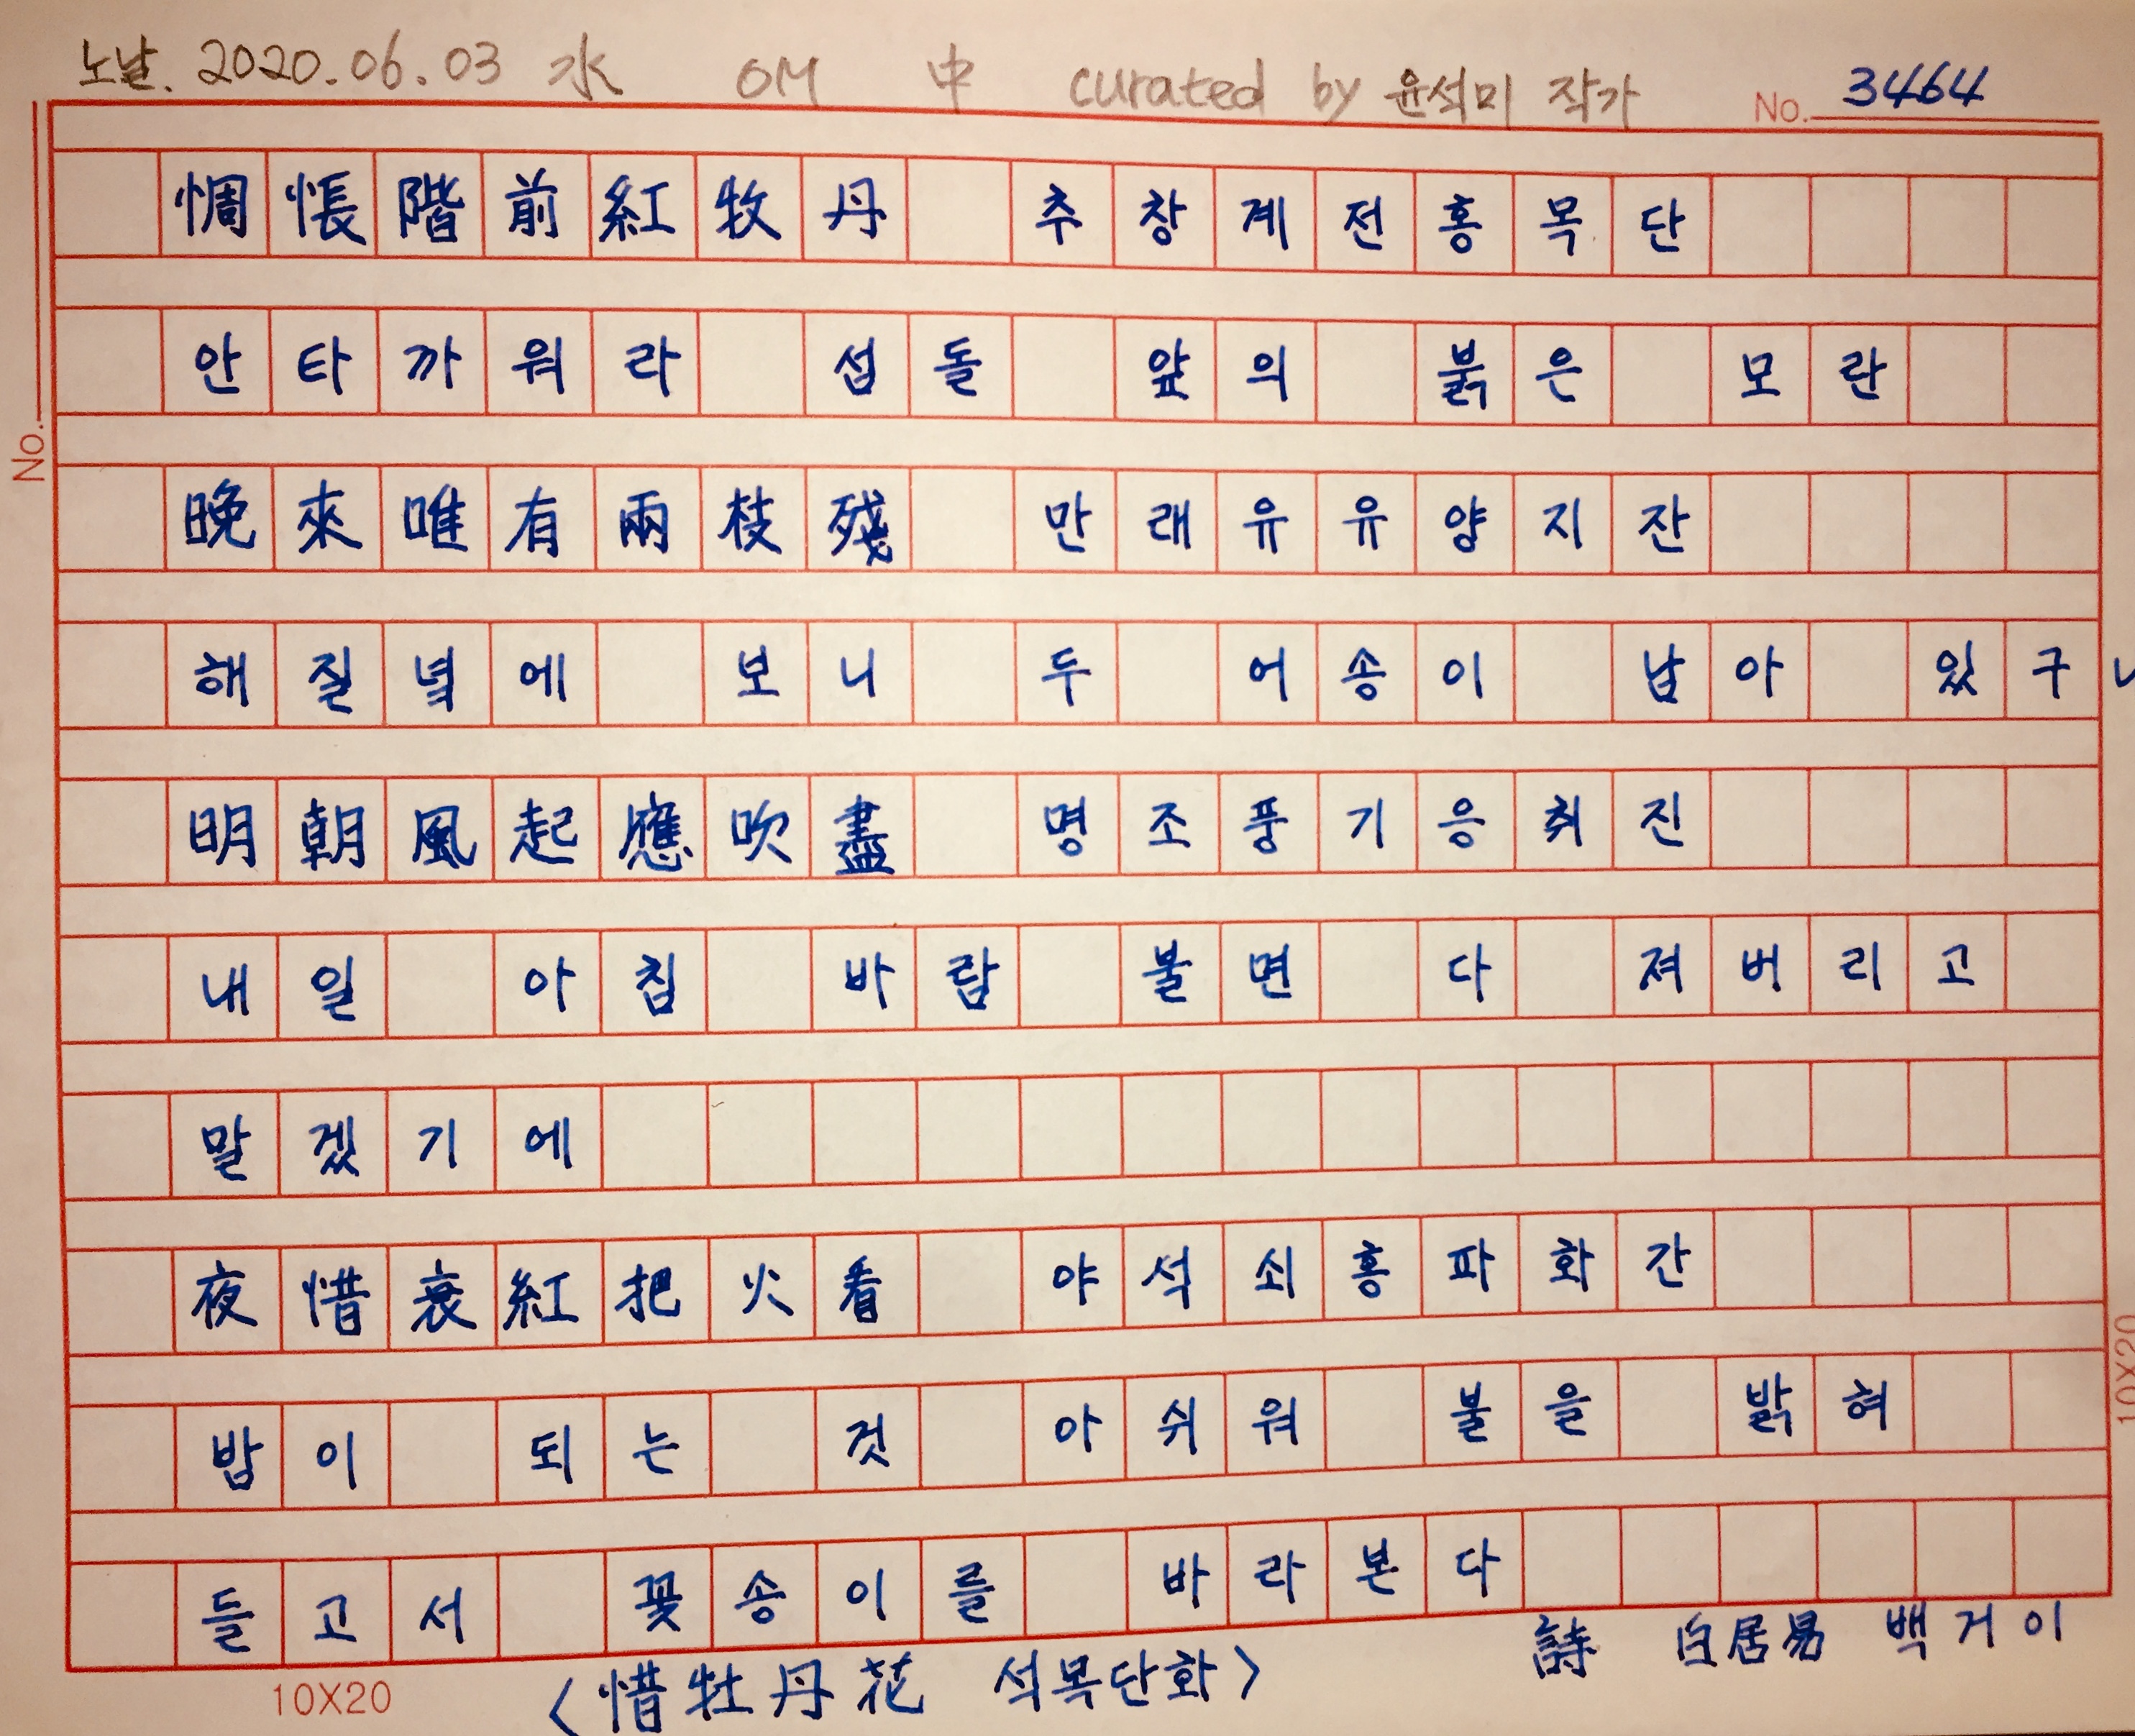 노날. 2020.06.03 水 OM 中 curated by 윤석미 작가 No. 3464
惆悵階前紅牧丹 추창계전홍목단
안타까워라 섭돌 앞의 붉은 모란
晩來唯有兩枝殘 만래유유양지잔
해질녘에 보니 두 어송이 남아 있구나
No.
明朝風起應吹盡 명조풍기응취진
내일 아침 바람 불면 다 져버리고
말겠기에
夜惜衰紅把火看 야석쇠홍파화간
밤이 되는 것 아쉬워 불을 밝혀
들고서 꽃송이를 바라본다
10X20
詩 白居易 백거이
10X20 <惜牡丹花 석목단화>